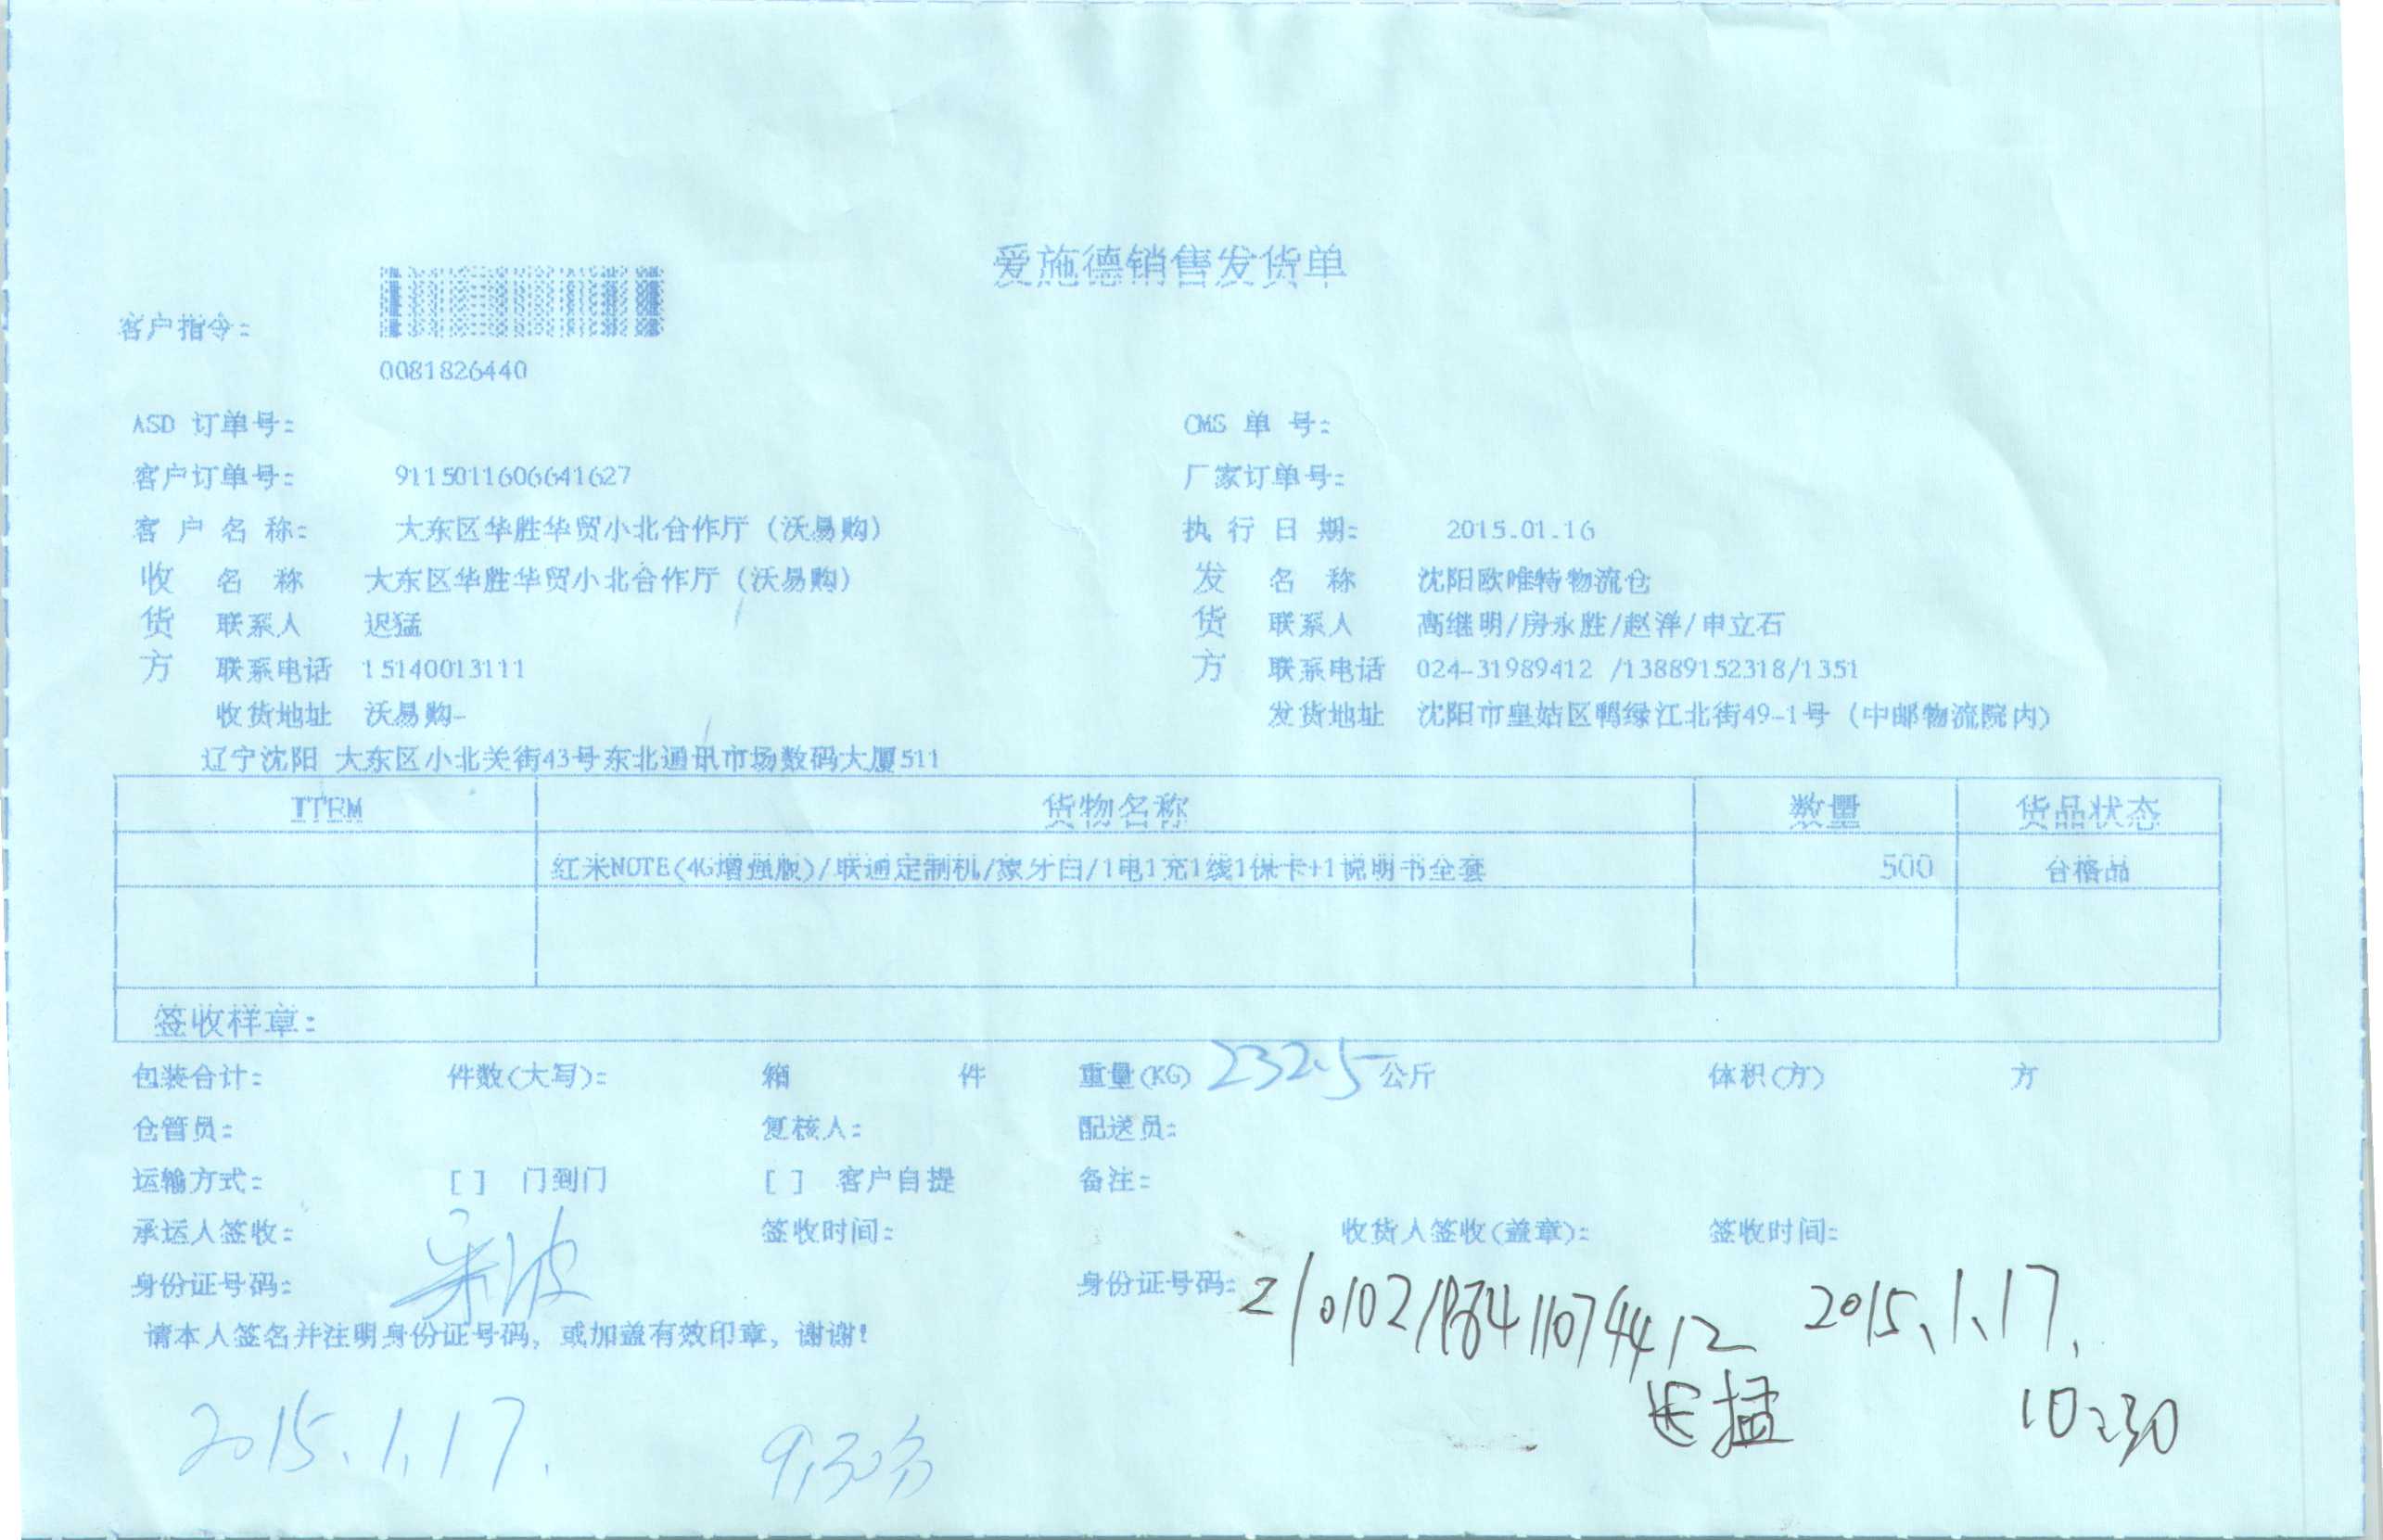 爱施德销售发货单
客户指令:
0081826440
ASD 订单号: CMS 单 号:
客户订单号: 9115011606641627 厂家订单号:
客 户 名 称: 大东区华胜华贸小北合作厅 (沃易购) 执 行 日 期: 2015.01.16
收 名 称 大东区华胜华贸小北合作厅 (沃易购) 发 名 称 沈阳欧唯特物流仓
货 联系人 迟猛 货 联系人 高继明/房永胜/赵洋/申立石
方 联系电话 15140013111 方 联系电话 024-31989412 /13889152318/1351
收货地址 沃易购- 发货地址 沈阳市皇姑区鸭绿江北街49-1号 (中邮物流院内)
辽宁沈阳 大东区小北关街43号东北通讯市场数码大厦511
ITEM 货物名称 数量 货品状态
红米NOTE(4G增强版)/联通定制机/象牙白/1电1充1线1保卡+1说明书全套 500 合格品
签收样章:
包装合计: 件数(大写): 箱 件 重量(KG) 232.5 公斤 体积(方) 方
仓管员: 复核人: 配送员:
运输方式: [ ] 门到门 [ ] 客户自提 备注:
承运人签收: 签收时间: 收货人签收(盖章): 签收时间:
身份证号码: 身份证号码: 2015.1.17.
请本人签名并注明身份证号码, 或加盖有效印章, 谢谢!
迟猛 10:30
2015.1.17. 9,30分